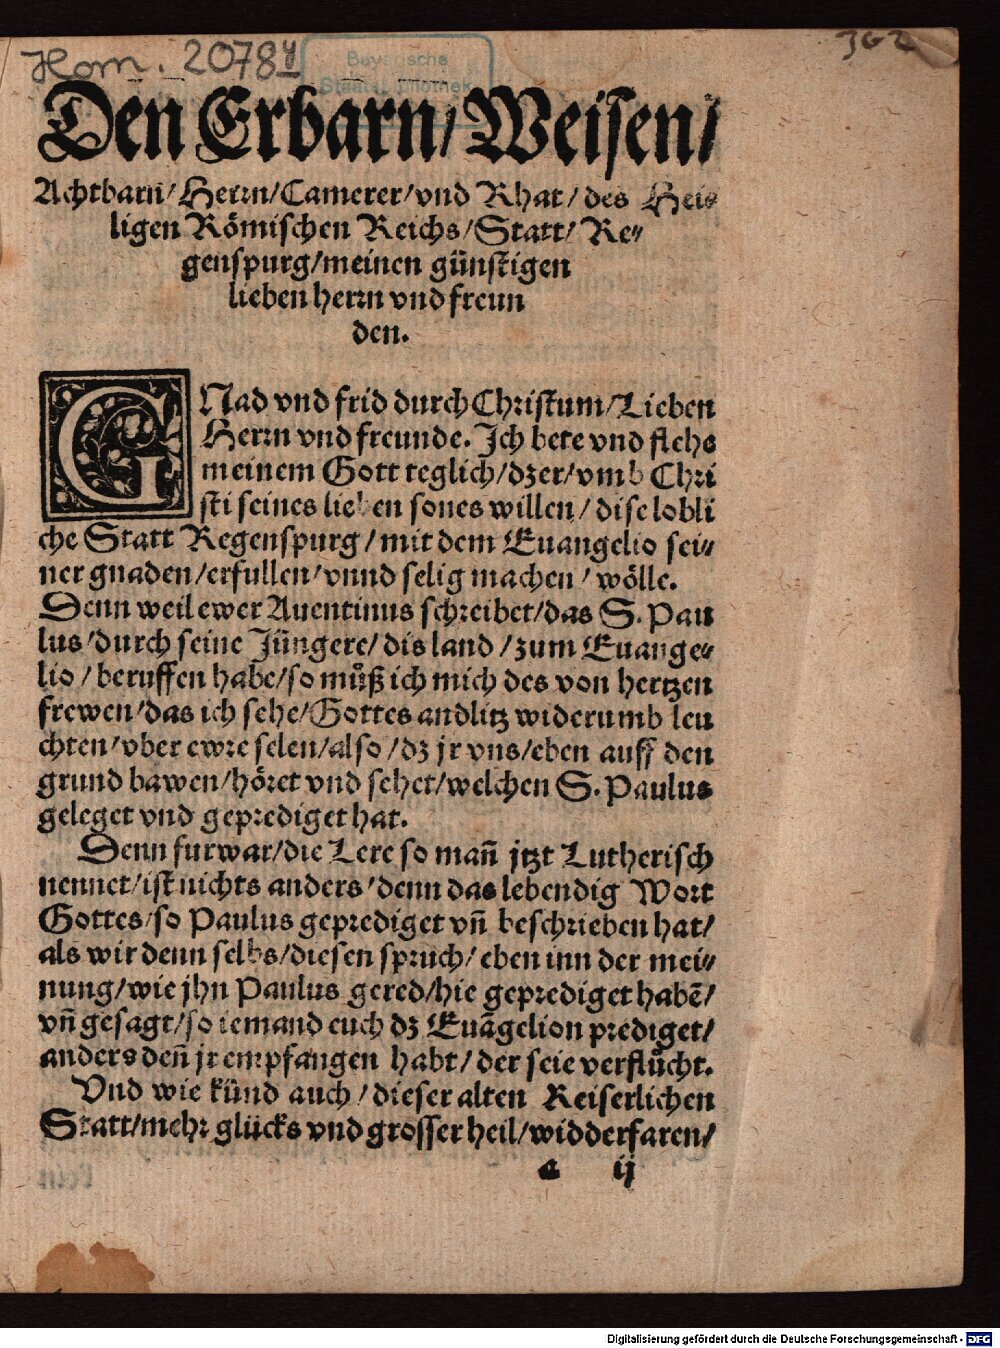 Hom. 2078 y
362
Bayerische
Staatsbibliothek
Den Erbarn/ Weisen/
Achtbarn/ Herrn/ Camerer/ vnd Rhat/ des Hei⸗
ligen Römischen Reichs/ Statt/ Re⸗
genspurg/ meinen günstigen
lieben herrn vnd freun
den.
GNad vnd frid durch Christum/ Lieben
Herrn vnd freunde. Ich bete vnd flehe
meinem Gott teglich/ dz er/ vmb Chri
sti seines lieben sones willen/ dise lobli
che Statt Regenspurg/ mit dem Euangelio sei⸗
ner gnaden/ erfullen/ vnnd selig machen/ wölle.
Denn weil ewer Auentinus schreibet/ das S. Pau
lus/ durch seine Jüngere/ dis land/ zum Euange⸗
lio/ beruffen habe/ so muͦß ich mich des von hertzen
frewen/ das ich sehe/ Gottes andlitz widerumb leu
chten/ vber ewre selen/ also/ dz jr vns/ eben auff den
grund bawen/ höret vnd sehet/ welchen S. Paulus
geleget vnd geprediget hat.
Denn furwar/ die Lere so mañ jtzt Lutherisch
nennet/ ist nichts anders/ denn das lebendig Wort
Gottes/ so Paulus geprediget vñ beschrieben hat/
als wir denn selbs/ diesen spruch/ eben inn der mei⸗
nung/ wie jhn Paulus gered/ hie geprediget habē/
vñ gesagt/ so iemand euch dz Euãgelion prediget/
anders deñ jr empfangen habt/ der seie verfluͦcht.
Vnd wie künd auch/ dieser alten Keiserlichen
Statt/ mehr glücks vnd grosser heil/ widderfaren/
a ij
Digitalisierung gefördert durch die Deutsche Forschungsgemeinschaft - DFG